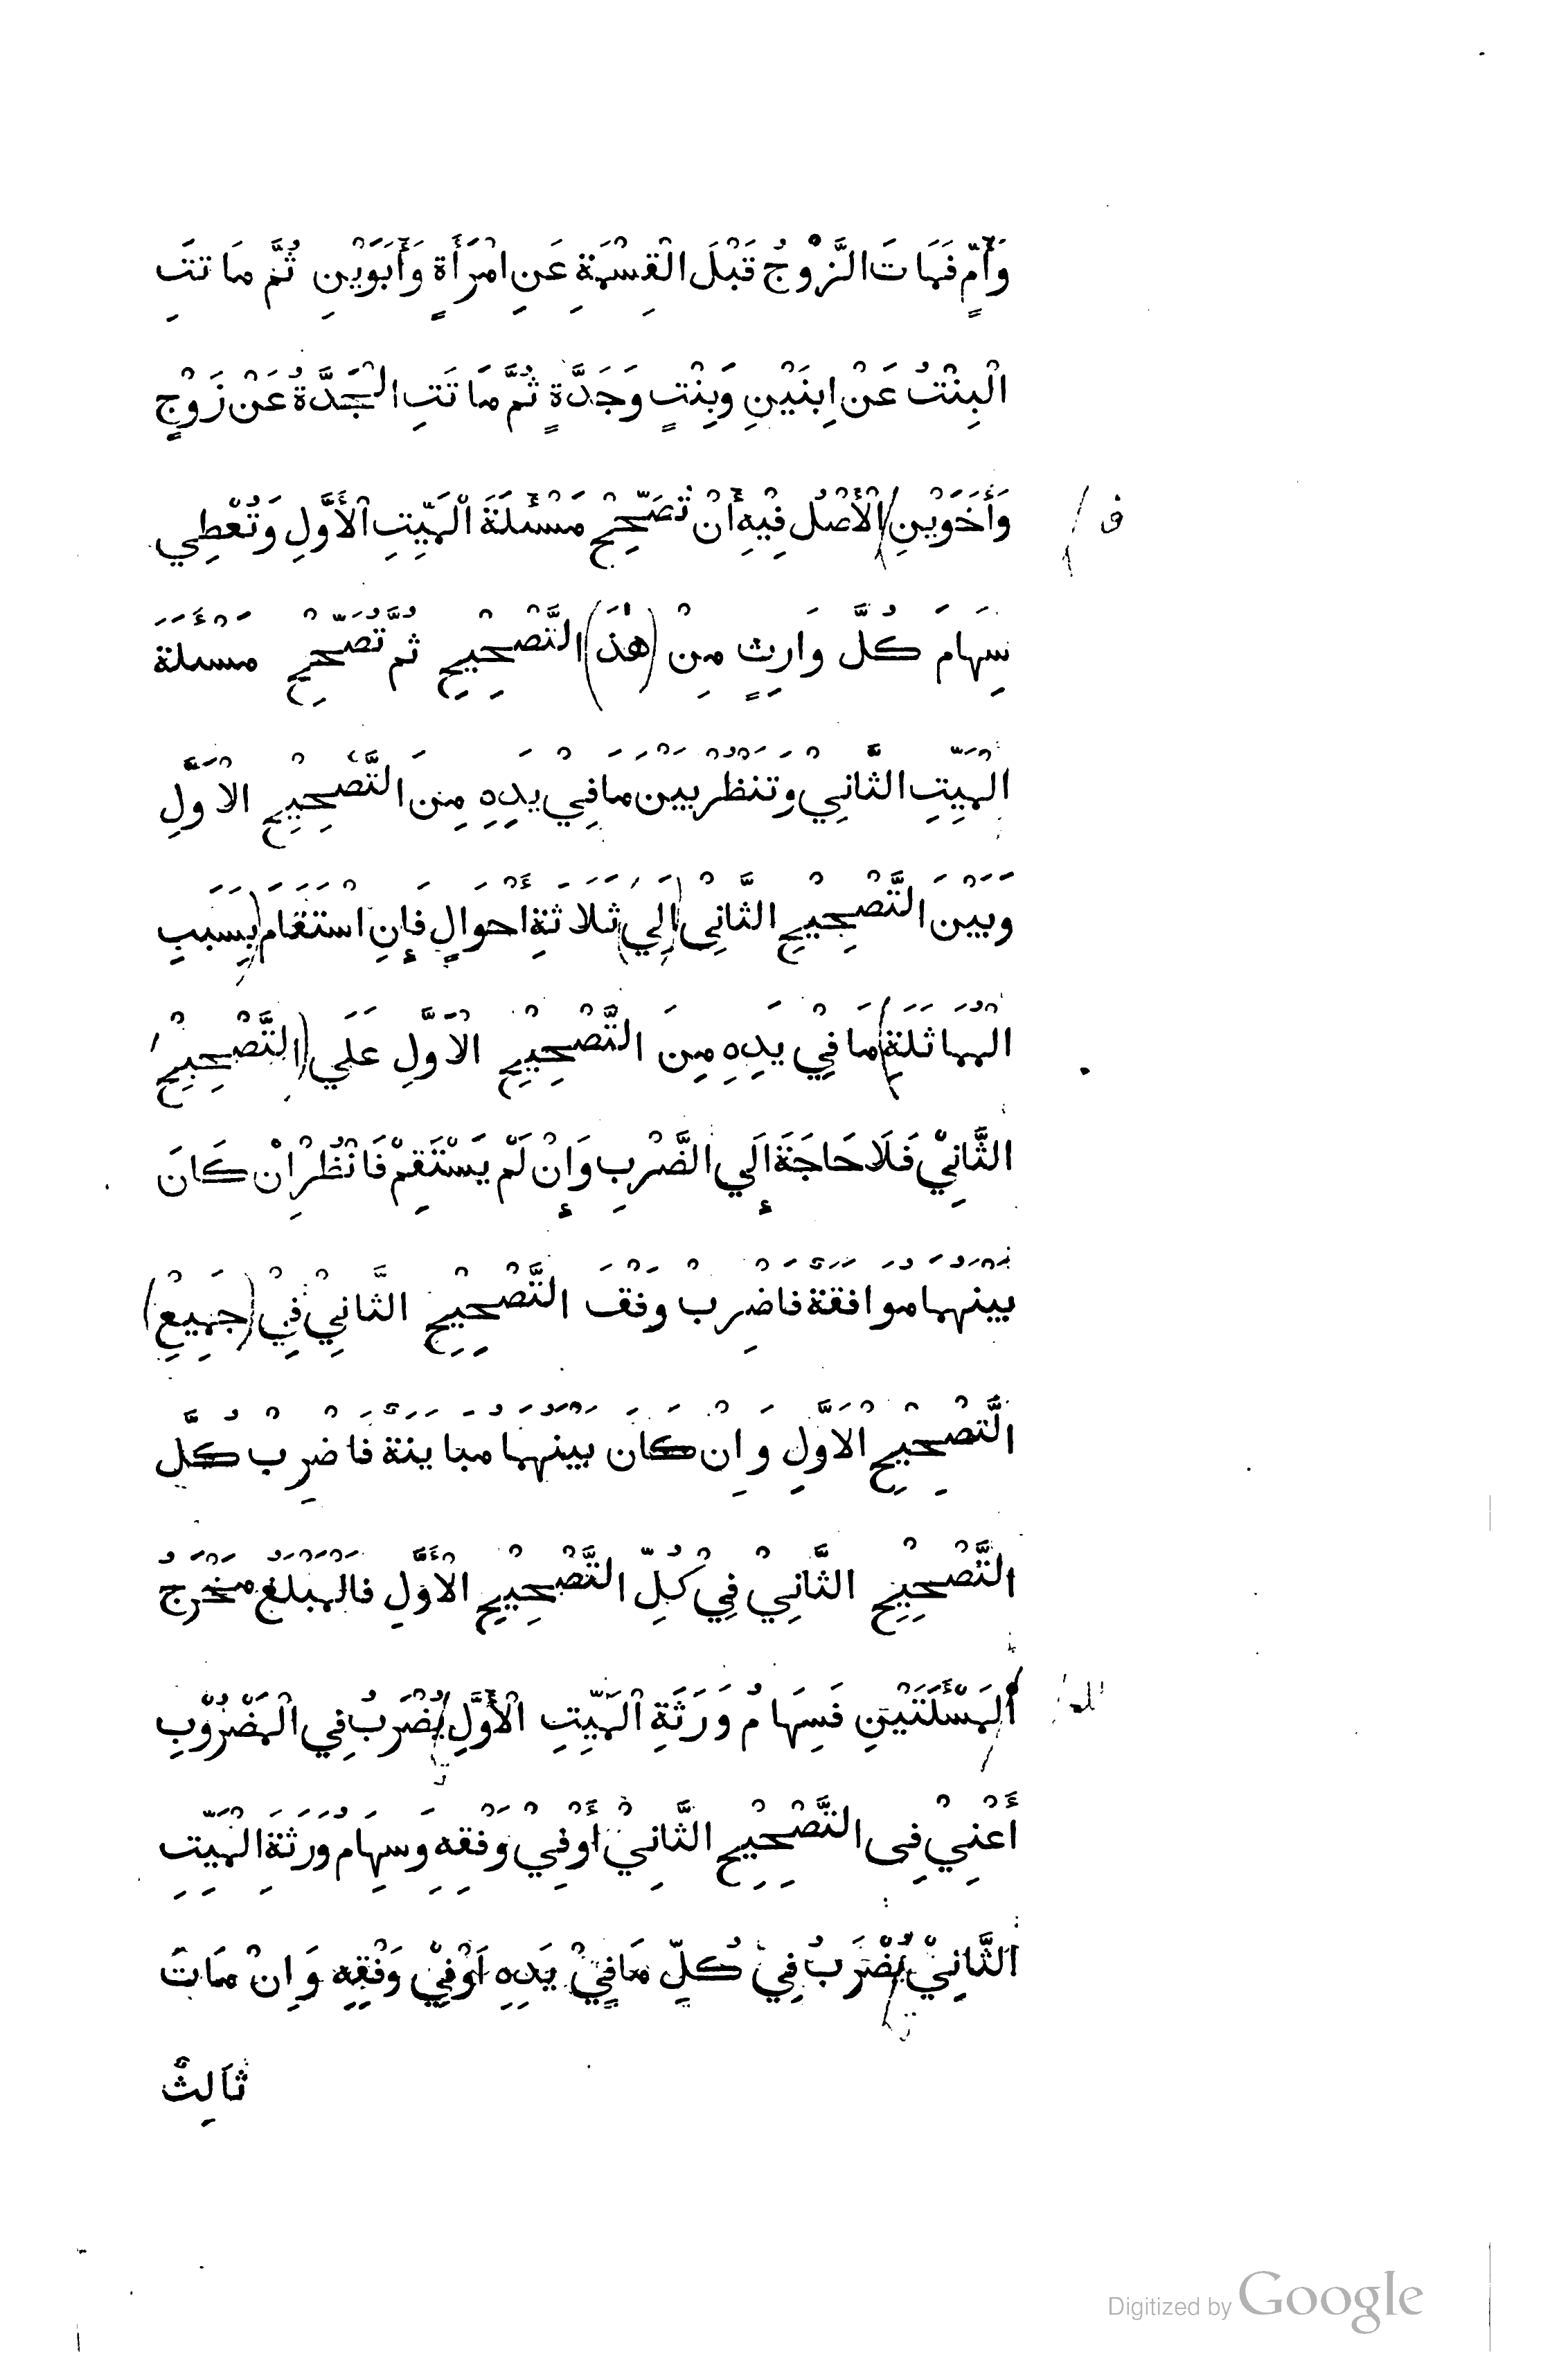 وَأُمٍّ فَمَاتَ الزَّوْجُ قَبْلَ الْقِسْمَةِ عَنِ امْرَأَةٍ وَأَبَوَيْنِ ثُمَّ مَاتَتِ
الْبِنْتُ عَنْ اِبنَيْنِ وَبِنْتٍ وَجَدَّةٍ ثُمَّ مَاتَتِ الْجَدَّةُ عَنْ زَوْجٍ
وَأَخَوَيْنِ الْأَصْلُ فِيْهِ أَنْ تُصَحِّحْ مَسْئَلَةَ الْمَيِّتِ الْأَوَّلِ وَتُعْطِي
ف
سِهَامَ كُلَّ وَارِثٍ مِنْ (هٰذَ) التَّصْحِيْحِ ثُمَّ تُصَحِّحْ مَسْئَلَةَ
الْمَيِّتِ الثَّانِيْ وَتَنْظُرَ بَيْنَ مَا فِيْ يَدِهِ مِنَ التَّصْحِيْحِ الْاَوَّلِ
وَبَيْنَ التَّصْحِيْحِ الثَّانِيْ (إِلَي) ثَلَاثَةِ أَحْوَالٍ فَإِنِ اسْتَقَامَ (بِسَبَبِ
الْمُمَاثَلَةِ) مَا فِيْ يَدِهِ مِنَ التَّصْحِيْحِ الْاَوَّلِ عَلَي (التَّصْحِيْحِ
الثَّانِيْ فَلَا حَاجَةَ إِلَي الضَّرْبِ وَإِنْ لَمْ يَسْتَقِمْ فَانْظُرْ اِنْ كَانَ
بَيْنَهُمَا مُوَافَقَةٌ فَاضْرِبْ وَفْقَ التَّصْحِيْحِ الثَّانِيْ فِيْ (جَمِيْعِ)
التَّصْحِيْحِ الْاَوَّلِ وَاِنْ كَانَ بَيْنَهُمَا مُبَايَنَةٌ فَاضْرِبْ كُلَّ
التَّصْحِيْحِ الثَّانِيْ فِيْ كُلِّ التَّصْحِيْحِ الْأَوَّلِ فَالْمَبْلَغُ مَخْرَجُ
الْمَسْئَلَتَيْنِ فَسِهَامُ وَرَثَةِ الْمَيِّتِ الْأَوَّلِ يُضْرَبُ فِي الْمَضْرُوْبِ
أَعْنِيْ فِى التَّصْحِيْحِ الثَّانِيْ أَوْ فِيْ وَفْقِهِ وَسِهَامُ وَرَثَةِ الْمَيِّتِ
الثَّانِيْ يُضْرَبُ فِيْ كُلِّ مَا فِيْ يَدِهِ اَوْ فِيْ وَفْقِهِ وَاِنْ مَاتَ
ثَالِثٌ
Digitized by Google